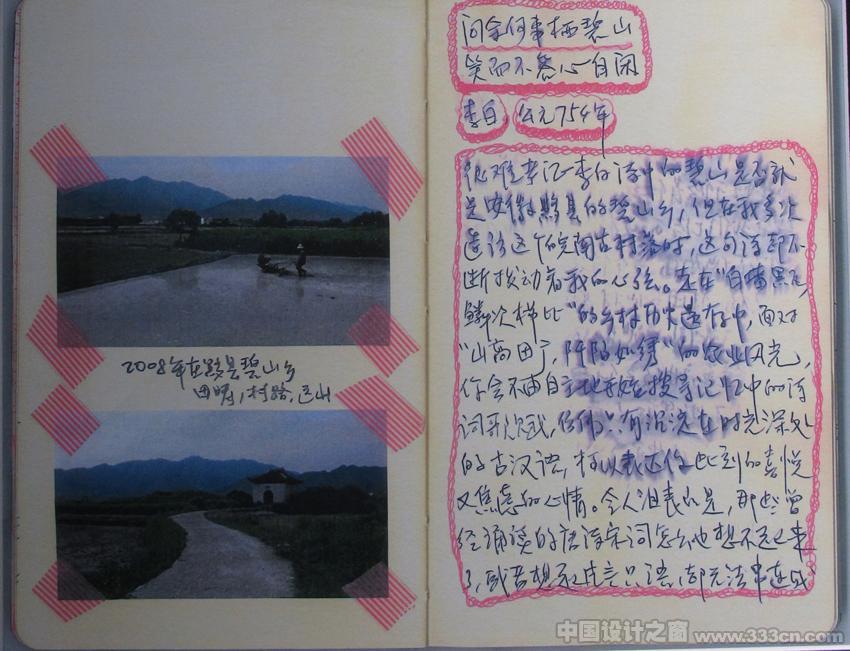 2008年在黟县碧山乡
田畴,村路,远山
问余何事栖碧山
笑而不答心自闲
李白,公元754年
很难考证李白诗中的碧山是否就
是安徽黟县的碧山乡,但在我多次
造访这个皖南古村落时,这句诗却不
断拨动着我的心弦。走在“白墙黑瓦,
鳞次栉比”的乡村历史遗存中,面对
“山高田广,阡陌如绣”的农业风光,
你会不由自主地开始搜寻记忆中的诗
词歌赋,仿佛只有沉淀在时光深处
的古汉语,才以表达你此刻的喜悦
又焦虑的心情。令人沮丧的是,那些曾
经诵读的唐诗宋词怎么也想不起来
了,或者想起片言只语,却无法串连成
中国设计之窗 www.333cn.com